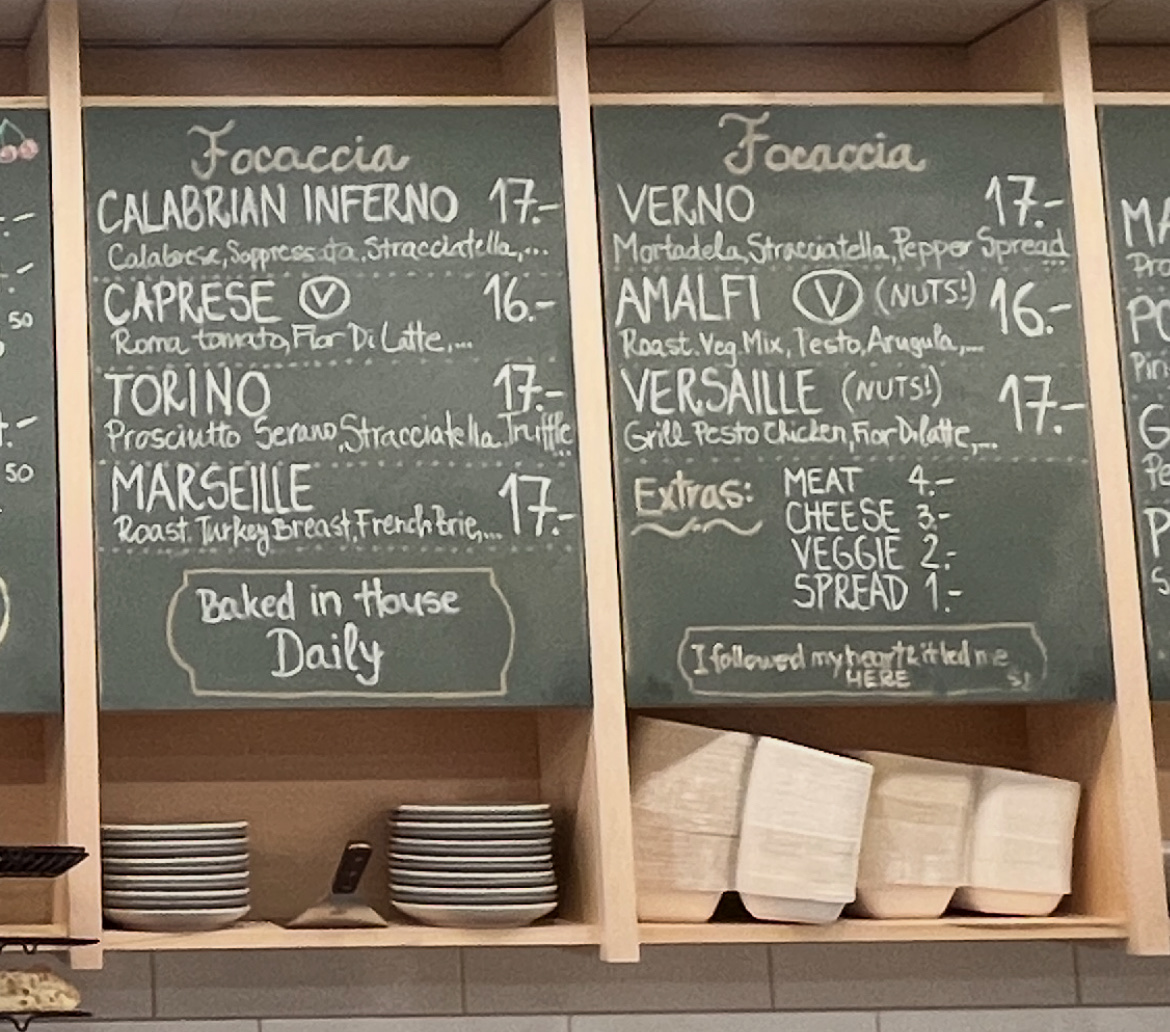 Focaccia
CALABRIAN INFERNO 17.-
Calabrese, Soppressata, Stracciatella,...
CAPRESE V 16.-
Roma tomato, Fior Di Latte,...
TORINO 17.-
Prosciutto Serano, Stracciatella, Truffle...
MARSEILLE 17.-
Roast. Turkey Breast, French Brie,...
Baked in House
Daily
Focaccia
VERNO 17.-
Mortadela, Stracciatella, Pepper Spread...
AMALFI V (NUTS!) 16.-
Roast. Veg. Mix, Pesto, Arugula,...
VERSAILLE (NUTS!) 17.-
Grill Pesto Chicken, Fior Di latte,...
Extras:
MEAT 4.-
CHEESE 3.-
VEGGIE 2.-
SPREAD 1.-
I followed my heart & it led me
HERE
50
50
MA
Pro
PO
Pin
G
Pe
P
S